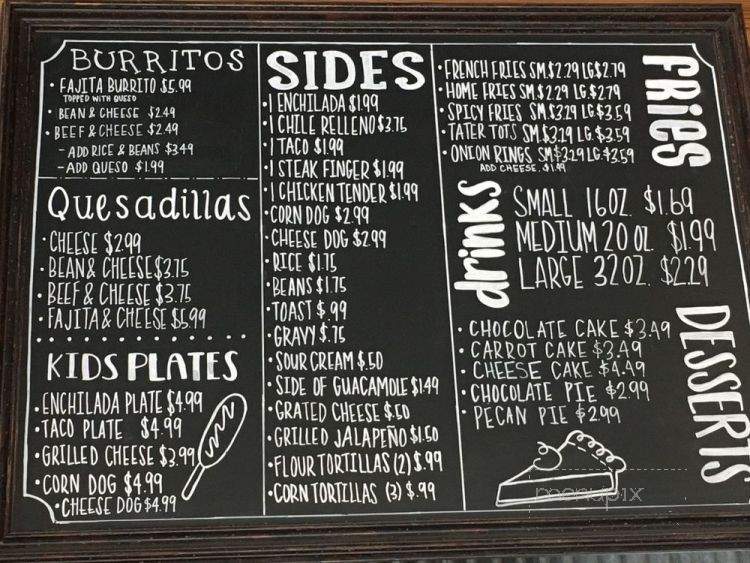 BURRITOS
• FAJITA BURRITO $5.99
TOPPED WITH QUESO
• BEAN & CHEESE $2.49
• BEEF & CHEESE $2.49
- ADD RICE & BEANS $3.49
- ADD QUESO $1.99
Quesadillas
• CHEESE $2.99
• BEAN & CHEESE $3.75
• BEEF & CHEESE $3.75
• FAJITA & CHEESE $5.99
KIDS PLATES
• ENCHILADA PLATE $4.99
• TACO PLATE $4.99
• GRILLED CHEESE $3.99
• CORN DOG $4.99
• CHEESE DOG $4.99
SIDES
• 1 ENCHILADA $1.99
• 1 CHILE RELLENO $3.75
• 1 TACO $1.99
• 1 STEAK FINGER $1.99
• 1 CHICKEN TENDER $1.99
• CORN DOG $2.99
• CHEESE DOG $2.99
• RICE $1.75
• BEANS $1.75
• TOAST $.99
• GRAVY $.75
• SOUR CREAM $.50
• SIDE OF GUACAMOLE $1.49
• GRATED CHEESE $.50
• GRILLED JALAPEÑO $1.50
• FLOUR TORTILLAS (2) $.99
• CORN TORTILLAS (3) $.99
FRIES
• FRENCH FRIES SM.$2.29 LG.$2.79
• HOME FRIES SM.$2.29 LG.$2.79
• SPICY FRIES SM.$3.29 LG.$3.59
• TATER TOTS SM.$3.29 LG.$3.59
• ONION RINGS SM.$3.29 LG.$3.59
ADD CHEESE .$1.49
drinks
SMALL 16OZ. $1.69
MEDIUM 20 OZ. $1.99
LARGE 32OZ. $2.29
DESSERTS
• CHOCOLATE CAKE $3.49
• CARROT CAKE $3.49
• CHEESE CAKE $4.49
• CHOCOLATE PIE $2.99
• PECAN PIE $2.99
menupix